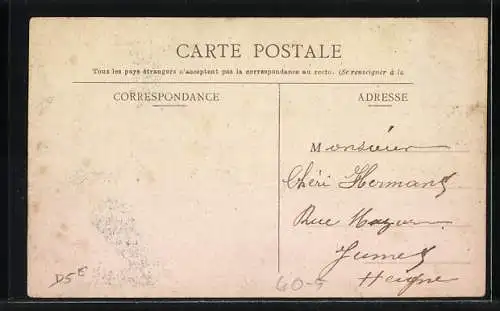 CARTE POSTALE
Tous les pays étrangers n'acceptent pas la correspondance au recto. (Se renseigner à la
CORRESPONDANCE
ADRESSE
Monsieur
Chéri Hermans
Rue Mazur
Jumet
Heigne
D5E
60-5